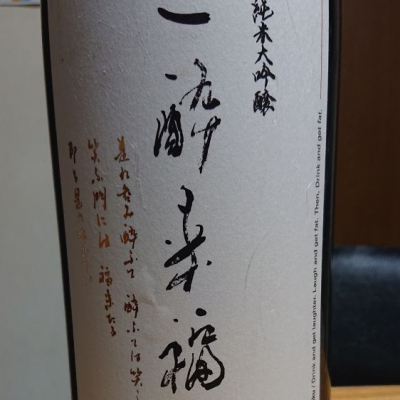 純米大吟醸
一酔来福
是れ呑み酔ふて 酔ふては笑
笑ふ門には 福来たる
Drink and get laughter. Laugh and get fat. Then, Drink and get fat.